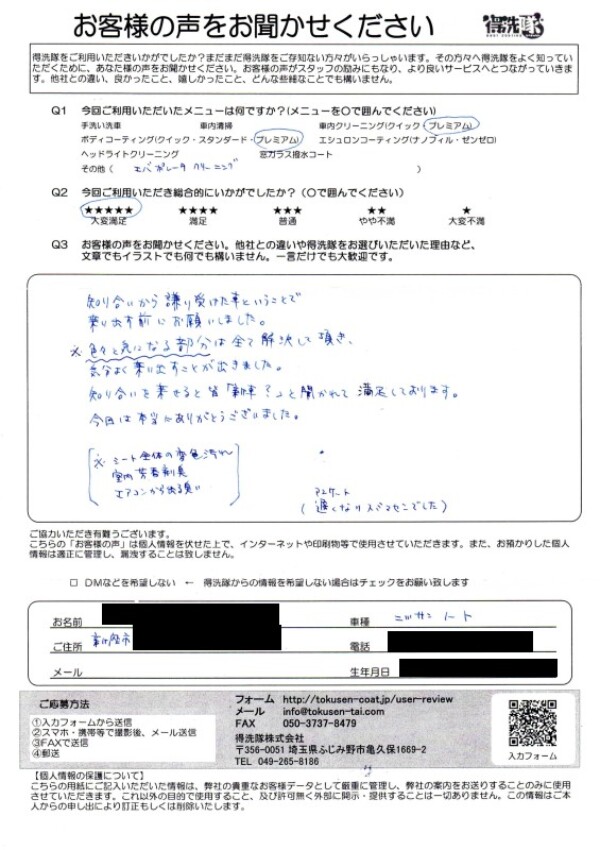 お客様の声をお聞かせください 得洗隊
得洗隊をご利用いただきいかがでしたか?まだまだ得洗隊をご存知ない方々がいらっしゃいます。その方々へ得洗隊をよく知っていただくために、あなた様の声をお聞かせください。お客様の声がスタッフの励みにもなり、より良いサービスへとつながっていきます。他社との違い、良かったこと、嬉しかったこと、どんな些細なことでも構いません。
Q1 今回ご利用いただいたメニューは何ですか?(メニューを〇で囲んでください)
手洗い洗車 車内清掃 車内クリーニング(クイック・プレミアム)
ボディコーティング(クイック・スタンダード・プレミアム) エシュロンコーティング(ナノフィル・ゼンゼロ)
ヘッドライトクリーニング 窓ガラス撥水コート
その他( エバポレータ クリーニング )
Q2 今回ご利用いただき総合的にいかがでしたか?(〇で囲んでください)
★★★★★ ★★★★ ★★★ ★★ ★
大変満足 満足 普通 やや不満 大変不満
Q3 お客様の声をお聞かせください。他社との違いや得洗隊をお選びいただいた理由など、
文章でもイラストでも何でも構いません。一言だけでも大歓迎です。
知り合いから譲り受けた車ということで
乗り出す前にお願いしました。
※色々と気になる部分は全て解決して頂き、
気分よく乗り出すことが出きました。
知り合いを乗せると皆「新車?」と聞かれて満足しております。
今回は本当にありがとうございました。
※シート全体の変色汚れ
室内芳香剤臭
エアコンから出る臭い
アンケート
(遅くなりスミマセンでした)
ご協力いただき有難うございます。
こちらの「お客様の声」は個人情報を伏せた上で、インターネットや印刷物等で使用させていただきます。また、お預かりした個人情報は適正に管理し、漏洩することは致しません。
□ DMなどを希望しない ← 得洗隊からの情報を希望しない場合はチェックをお願い致します
お名前 車種 ニッサン ノート
ご住所 新座市 電話
メール 生年月日
ご応募方法
①入力フォームから送信
②スマホ・携帯等で撮影後、メール送信
③FAXで送信
④郵送
フォーム http://tokusen-coat.jp/user-review
メール info@tokusen-tai.com
FAX 050-3737-8479
得洗隊株式会社
〒356-0051 埼玉県ふじみ野市亀久保1669-2
TEL 049-265-8186
入力フォーム
【個人情報の保護について】
こちらの用紙にご記入いただいた情報は、弊社の貴重なお客様データとして厳重に管理し、弊社の案内をお送りすることのみに使用させていただきます。これ以外の目的で使用すること、及び許可無く外部に開示・提供することは一切ありません。この情報はご本人からの申し出により訂正もしくは削除いたします。